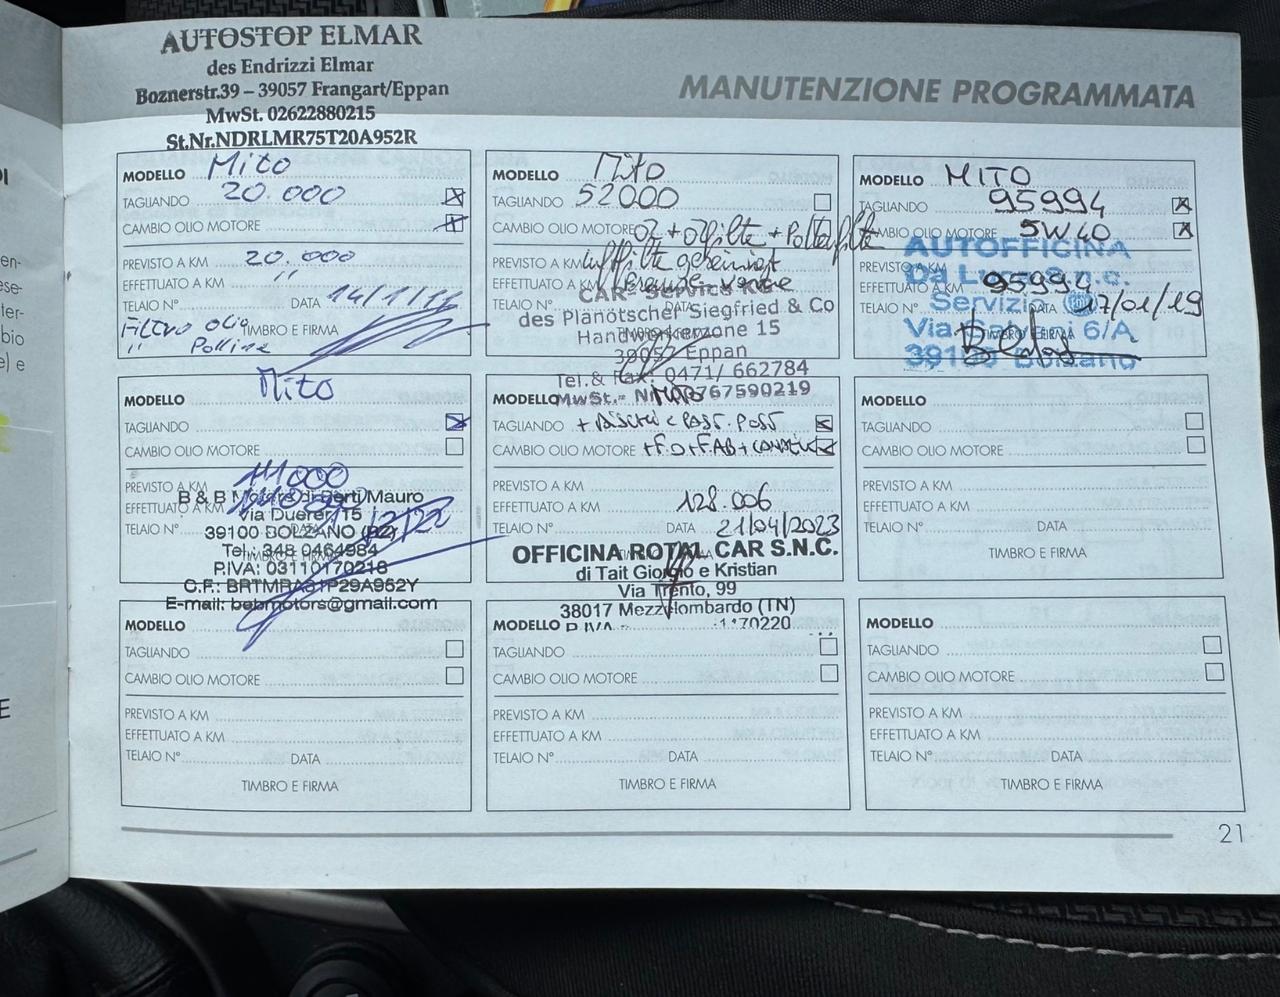 AUTOSTOP ELMAR
des Endrizzi Elmar
Boznerstr.39 – 39057 Frangart/Eppan
MwSt. 02622880215
St.Nr.NDRLMR75T20A952R
MANUTENZIONE PROGRAMMATA
MODELLO Mito
TAGLIANDO 20.000
CAMBIO OLIO MOTORE
PREVISTO A KM 20.000
EFFETTUATO A KM "
TELAIO N° DATA 14/1/
Filtro olio TIMBRO E FIRMA
" Polline
MODELLO Mito
TAGLIANDO 52000
CAMBIO OLIO MOTORE Öl + Ölfilte + Pollenfilte
PREVISTO A KM Luftfilte gereinigt
EFFETTUATO A KM Bremse
TELAIO N° DATA
CAR- Service KG
des Planötscher Siegfried & Co
Handwerkerzone 15
39057 Eppan
Tel.& Fax: 0471/ 662784
MwSt.- Nr. 767590219
MODELLO MITO
TAGLIANDO 95994
CAMBIO OLIO MOTORE 5W40
PREVISTO A KM
EFFETTUATO A KM 95994
TELAIO N° DATA 17/01/19
TIMBRO E FIRMA
AUTOFFICINA
Da Luca S.n.c.
Servizio
Via 6/A
39100 Bolzano
Mito
TAGLIANDO
CAMBIO OLIO MOTORE
PREVISTO A KM 111000
EFFETTUATO A KM
TELAIO N° DATA
B & B Motors di Berti Mauro
Via Duerer 15
39100 BOLZANO (BZ)
Tel.: 348 0464984
P.IVA: 03110170218
C.F.: BRTMRA61P29A952Y
E-mail: bebmotors@gmail.com
MODELLO Mito
TAGLIANDO + DISCHI E PAST. POST
CAMBIO OLIO MOTORE +F.O+FAB+
PREVISTO A KM
EFFETTUATO A KM 128.006
TELAIO N° DATA 21/04/2023
OFFICINA ROTAL CAR S.N.C.
di Tait Giorgio e Kristian
Via Trento, 99
38017 Mezzolombardo (TN)
P.IVA
MODELLO
TAGLIANDO
CAMBIO OLIO MOTORE
PREVISTO A KM
EFFETTUATO A KM
TELAIO N° DATA
TIMBRO E FIRMA
MODELLO
TAGLIANDO
CAMBIO OLIO MOTORE
PREVISTO A KM
EFFETTUATO A KM
TELAIO N° DATA
TIMBRO E FIRMA
MODELLO
TAGLIANDO
CAMBIO OLIO MOTORE
PREVISTO A KM
EFFETTUATO A KM
TELAIO N° DATA
TIMBRO E FIRMA
MODELLO
TAGLIANDO
CAMBIO OLIO MOTORE
PREVISTO A KM
EFFETTUATO A KM
TELAIO N° DATA
TIMBRO E FIRMA
21